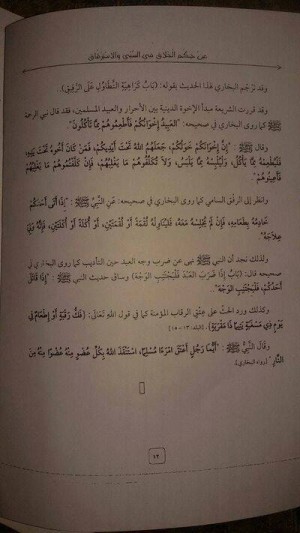 عن حكم الطلاق في السبي والاسترقاق
وقد ترجم البخاري لهذا الحديث بقوله: (بَابُ كَرَاهِيَةِ التَّطَاوُلِ عَلَى الرَّقِيقِ).
وقد قررت الشريعة مبدأ الإخوة الدينية بين الأحرار والعبيد المسلمين، فقد قال نبي الرحمة
كما روى البخاري في صحيحه: "العَبِيدُ إِخْوَانُكُمْ فَأَطْعِمُوهُمْ مِمَّا تَأْكُلُونَ".
وقال ﷺ: "إِنَّ إِخْوَانَكُمْ خَوَلُكُمْ، جَعَلَهُمُ اللَّهُ تَحْتَ أَيْدِيكُمْ، فَمَنْ كَانَ أَخُوهُ تَحْتَ يَدِهِ،
فَلْيُطْعِمْهُ مِمَّا يَأْكُلُ، وَلْيُلْبِسْهُ مِمَّا يَلْبَسُ، وَلَا تُكَلِّفُوهُمْ مَا يَغْلِبُهُمْ، فَإِنْ كَلَّفْتُمُوهُمْ مَا يَغْلِبُهُمْ
فَأَعِينُوهُمْ"
ولنظر إلى الرفق السامي كما روى البخاري في صحيحه: عَنِ النَّبِيِّ ﷺ: "إِذَا أَتَى أَحَدَكُمْ
خَادِمُهُ بِطَعَامِهِ، فَإِنْ لَمْ يُجْلِسْهُ مَعَهُ، فَلْيُنَاوِلْهُ لُقْمَةً أَوْ لُقْمَتَيْنِ، أَوْ أُكْلَةً أَوْ أُكْلَتَيْنِ، فَإِنَّهُ وَلِيَ
عِلَاجَهُ"
ولذلك نجد أن النبي ﷺ نهى عن ضرب وجه العبد حين التأديب كما روى البخاري في
صحيحه قال: (بَابُ إِذَا ضَرَبَ العَبْدَ فَلْيَجْتَنِبِ الوَجْهَ) وساق حديث النبي ﷺ: "إِذَا قَاتَلَ
أَحَدُكُمْ، فَلْيَجْتَنِبِ الوَجْهَ"
وكذلك ورد الحث على عتق الرقاب المؤمنة كما في قول الله تعالى: (فَكُّ رَقَبَةٍ أَوْ إِطْعَامٌ فِي
يَوْمٍ ذِي مَسْغَبَةٍ يَتِيمًا ذَا مَقْرَبَةٍ) [البلد: ١٣ - ١٥]
وقال النَّبِيُّ ﷺ: "أَيُّمَا رَجُلٍ أَعْتَقَ امْرَءًا مُسْلِمًا، اسْتَنْقَذَ اللَّهُ بِكُلِّ عُضْوٍ مِنْهُ عُضْوًا مِنْهُ مِنَ
النَّارِ" [رواه البخاري]
١٢